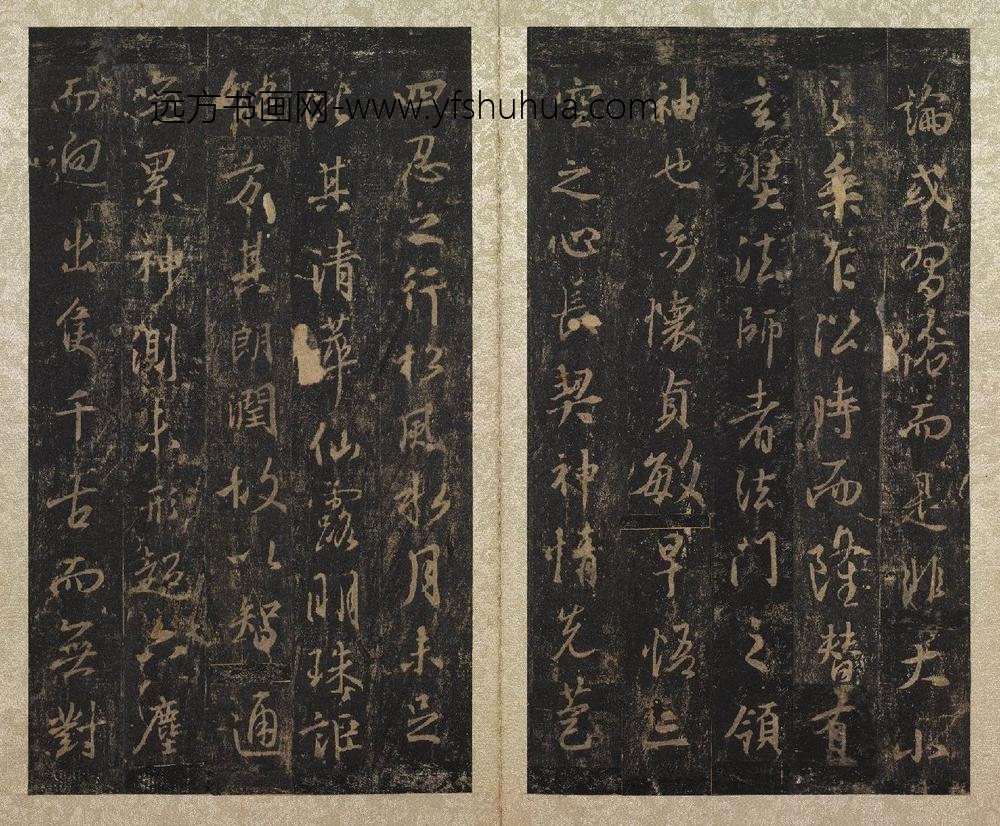 論或習俗而是非大小
之乘乍沿時而隆替有
玄奘法師者法門之領
袖也幼懷貞敏早悟三
空之心長契神情先苞
四忍之行松風水月未足
比其清華仙露明珠詎
能方其朗潤故以智通
无累神測未形超六塵
而迥出隻千古而無對
远方书画网-www.yfshuhua.com